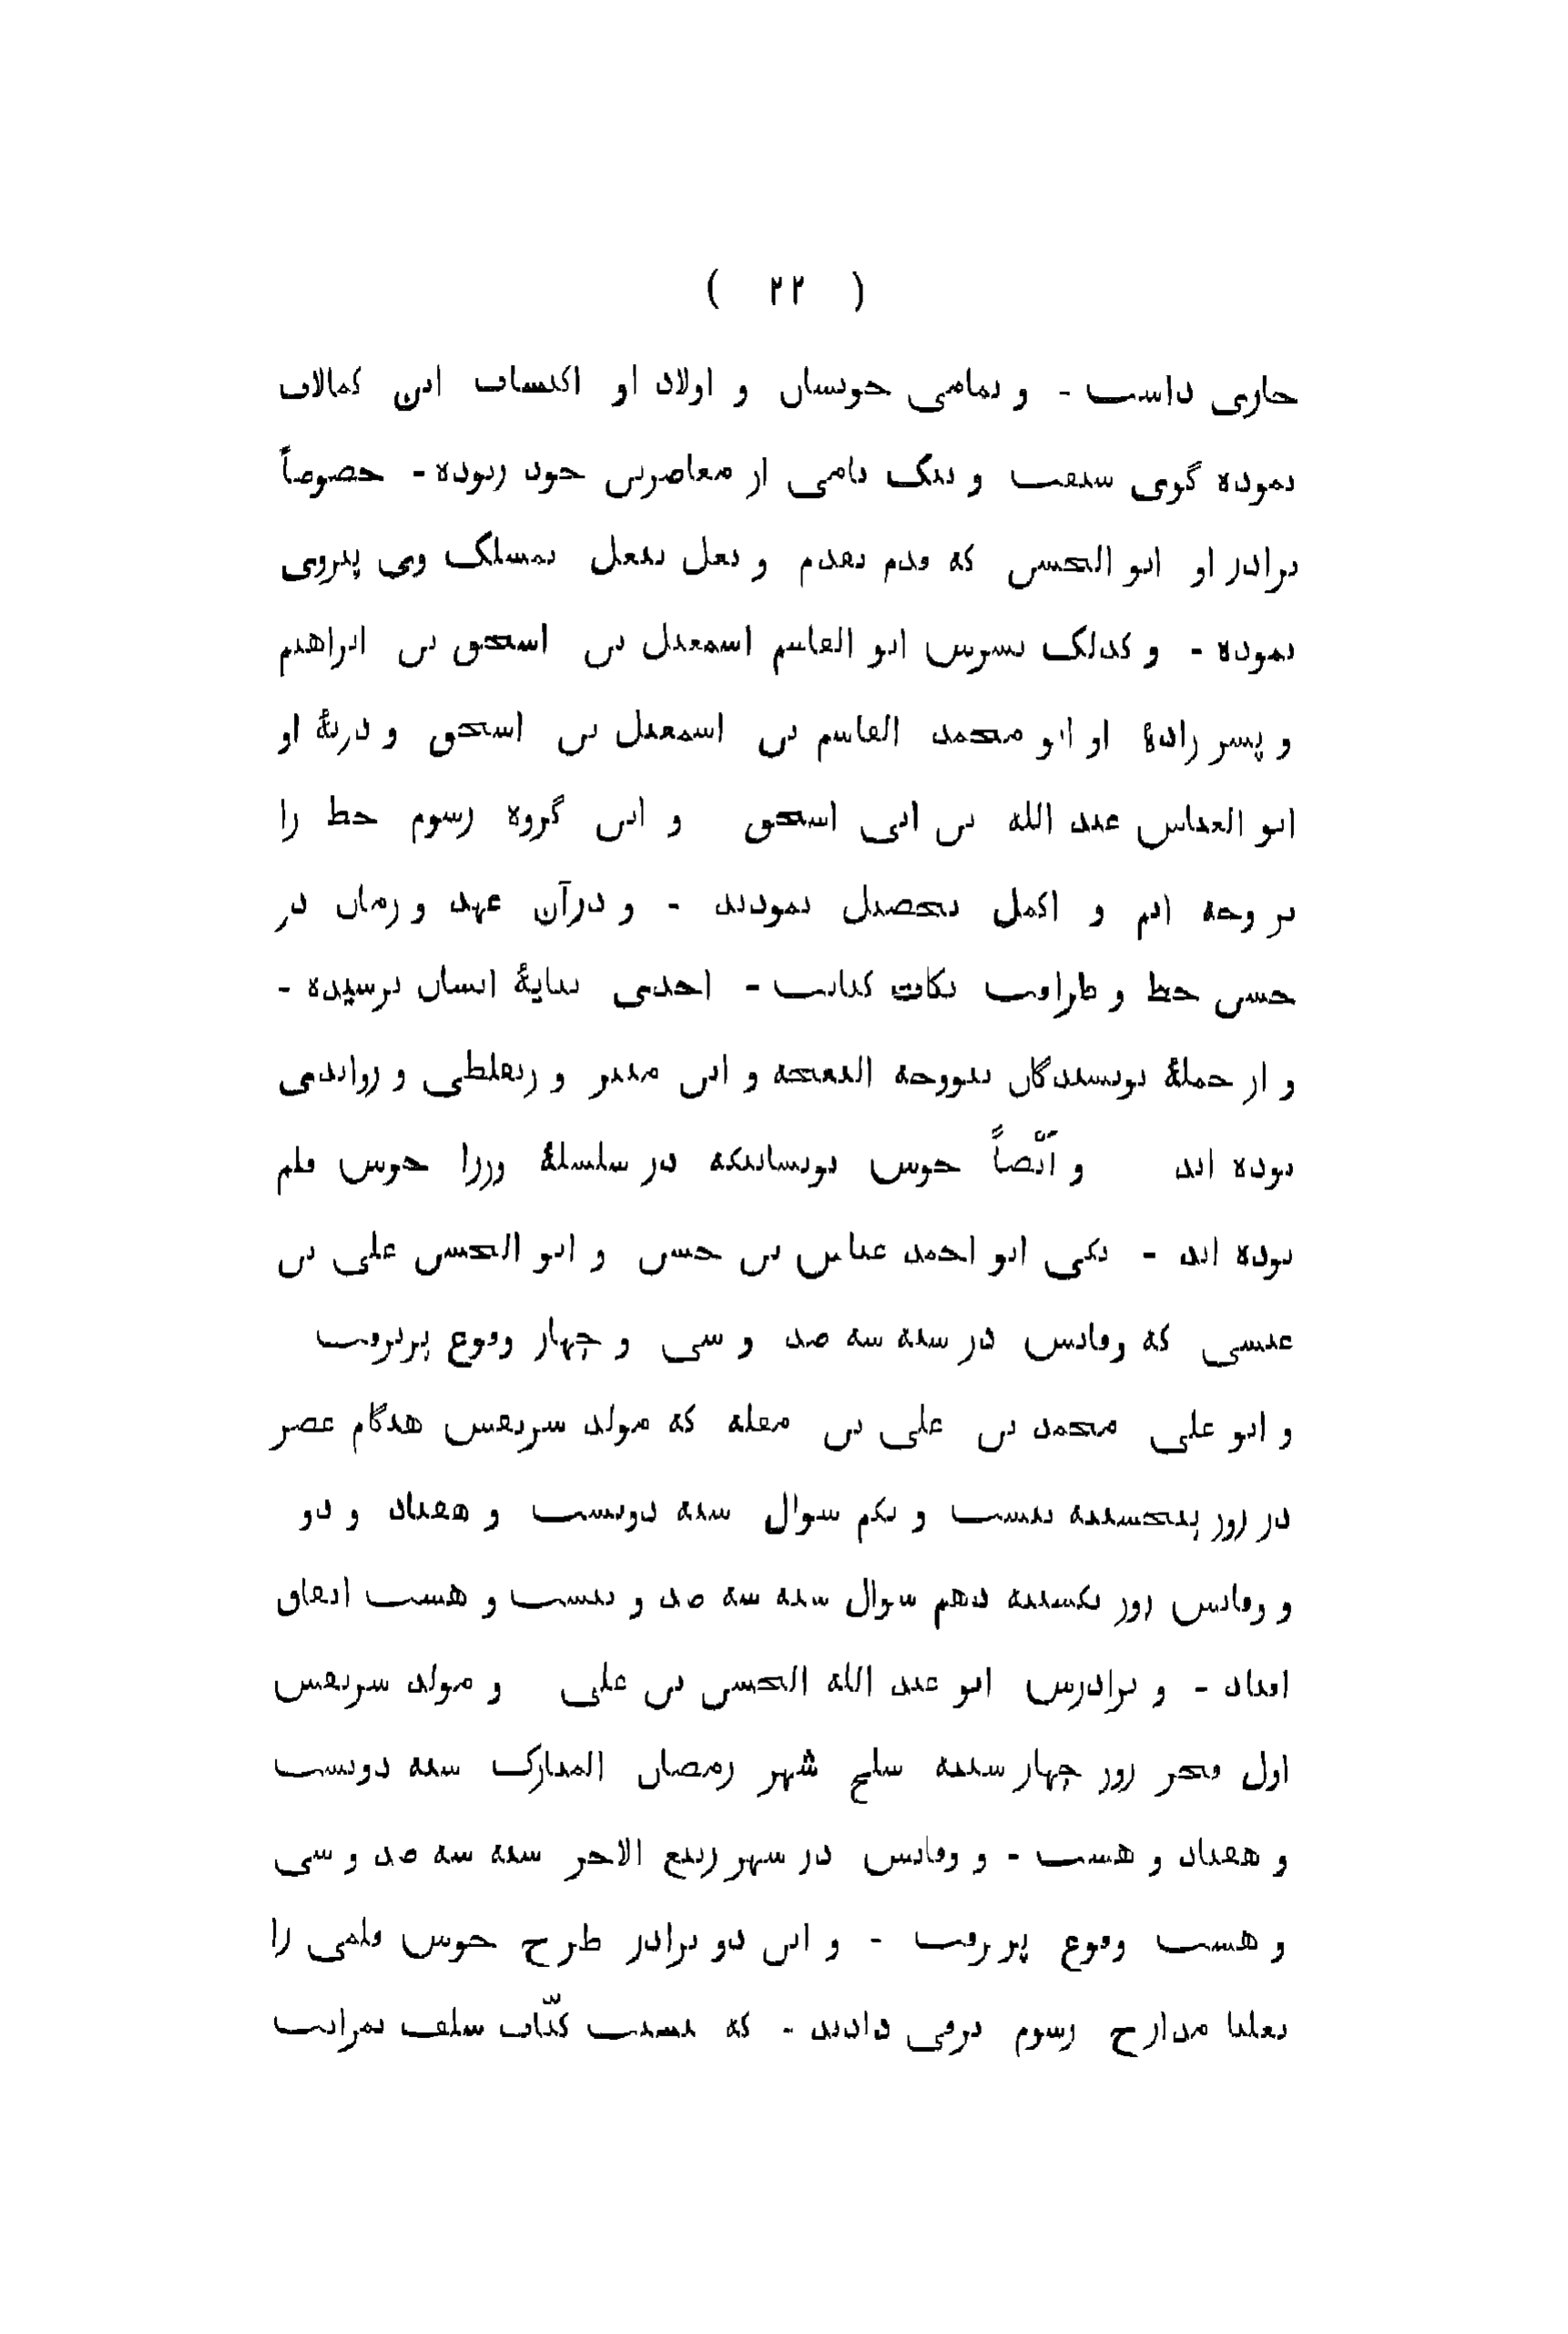 ( ۲۲ )
جاری داشت - و تمامی خویشان و اولاد او اکتساب این کمالات
نموده گوی سبقت و نیک نامی از معاصرین خود ربوده - خصوصاً
برادر او ابو الحسن که قدم بقدم و نعل بنعل بمسلک وی پیروی
نموده - و کذلک پسرش ابو القاسم اسمعیل بن اسحق بن ابراهیم
و پسر زادۀ او ابو محمد القاسم بن اسمعیل بن اسحق و ذریۀ او
ابو العباس عبد الله بن ابی اسحق و این گروه رسوم خط را
بر وجه اتم و اکمل تحصیل نمودند - و درآن عهد و زمان در
حسن خط و طراوت نکات کتابت - احدی بپایۀ ایشان نرسیده -
و از جملۀ نویسندگان بنووجه النعجه و ابن منیر و زنفلطی و روایدی
بوده اند و ایضاً خوش نویسانیکه در سلسلۀ وزرا خوش قلم
بوده اند - یکی ابو احمد عباس بن حسن و ابو الحسن علی بن
عیسی که وفاتش در سنه سه صد و سی و چهار وقوع پزیرفت
و ابو علی محمد بن علی بن مقله که مولد شریفش هنگام عصر
در روز پنجشنبه بیست و یکم شوال سنه دویست و هفتاد و دو
و وفاتش روز یکشنبه دهم شوال سنه سه صد و بیست و هشت اتفاق
افتاد - و برادرش ابو عبد الله الحسن بن علی و مولد شریفش
اول فجر روز چهار شنبه سلخ شهر رمضان المبارک سنه دویست
و هفتاد و هشت - و وفاتش در شهر ربیع الاخر سنه سه صد و سی
و هشت وقوع پزیرفت - و این دو برادر طرح خوش قلمی را
بعلیا مدارج رسوم ترقی دادند - که نسبت کتّاب سلف بمراتب